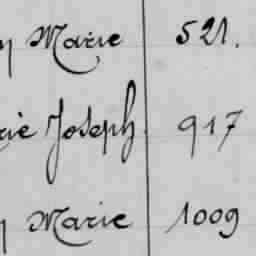 Marie 521.
Joseph 917
Marie 1009